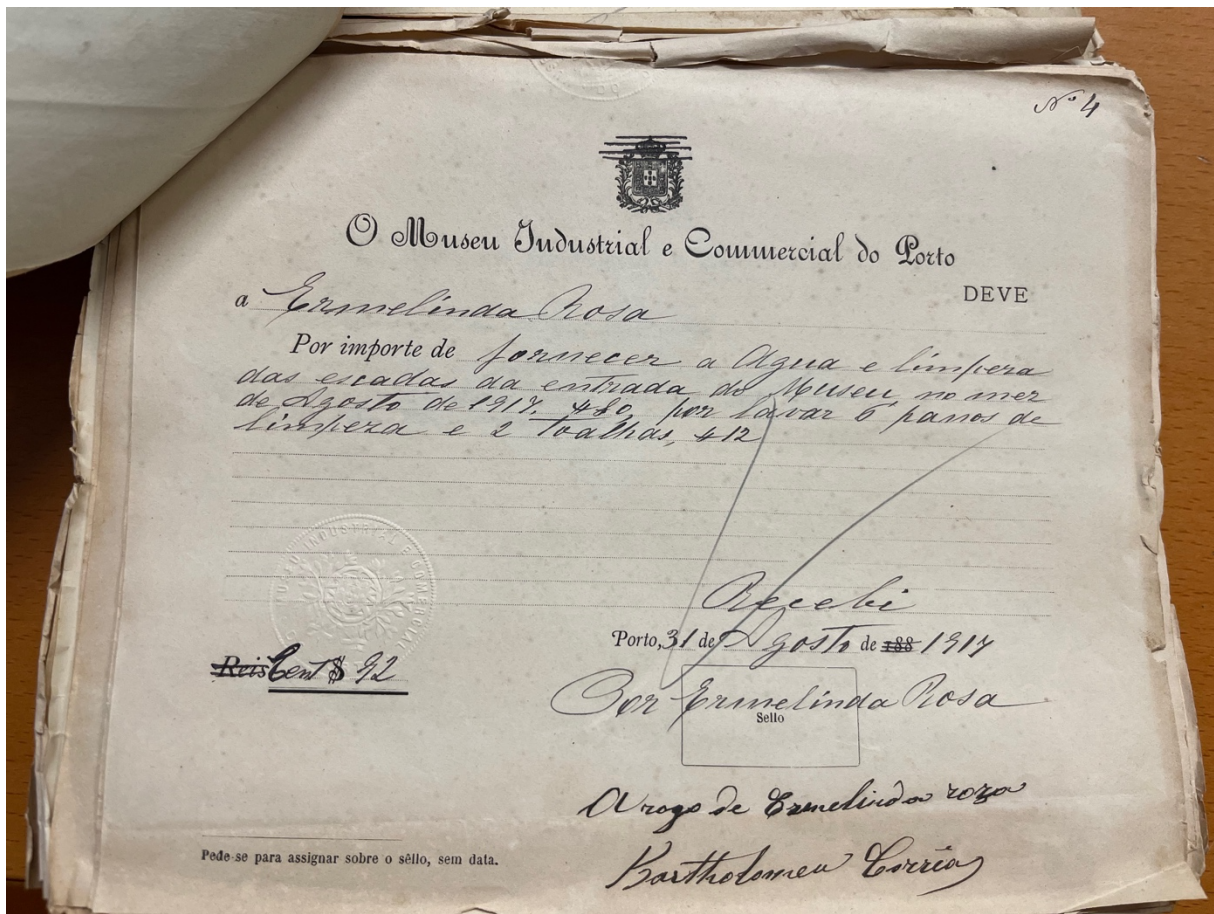 Nº 4
O Museu Industrial e Commercial do Porto
DEVE
a Ermelinda Rosa
Por importe de fornecer a Agua e limpeza
das escadas da entrada do Museu, no mez
de Agosto de 1917, $80, por lavar 6 panos de
limpeza e 2 Toalhas, $12
MUSEU INDUSTRIAL E COMMERCIAL
Recebi
Porto, 31 de Agosto de 188 1917
Reis Cent $ 92
Por Ermelinda Rosa
Sello
A rogo de Ermelinda roza
Bartholomeu Corrêa
Pede-se para assignar sobre o sêllo, sem data.